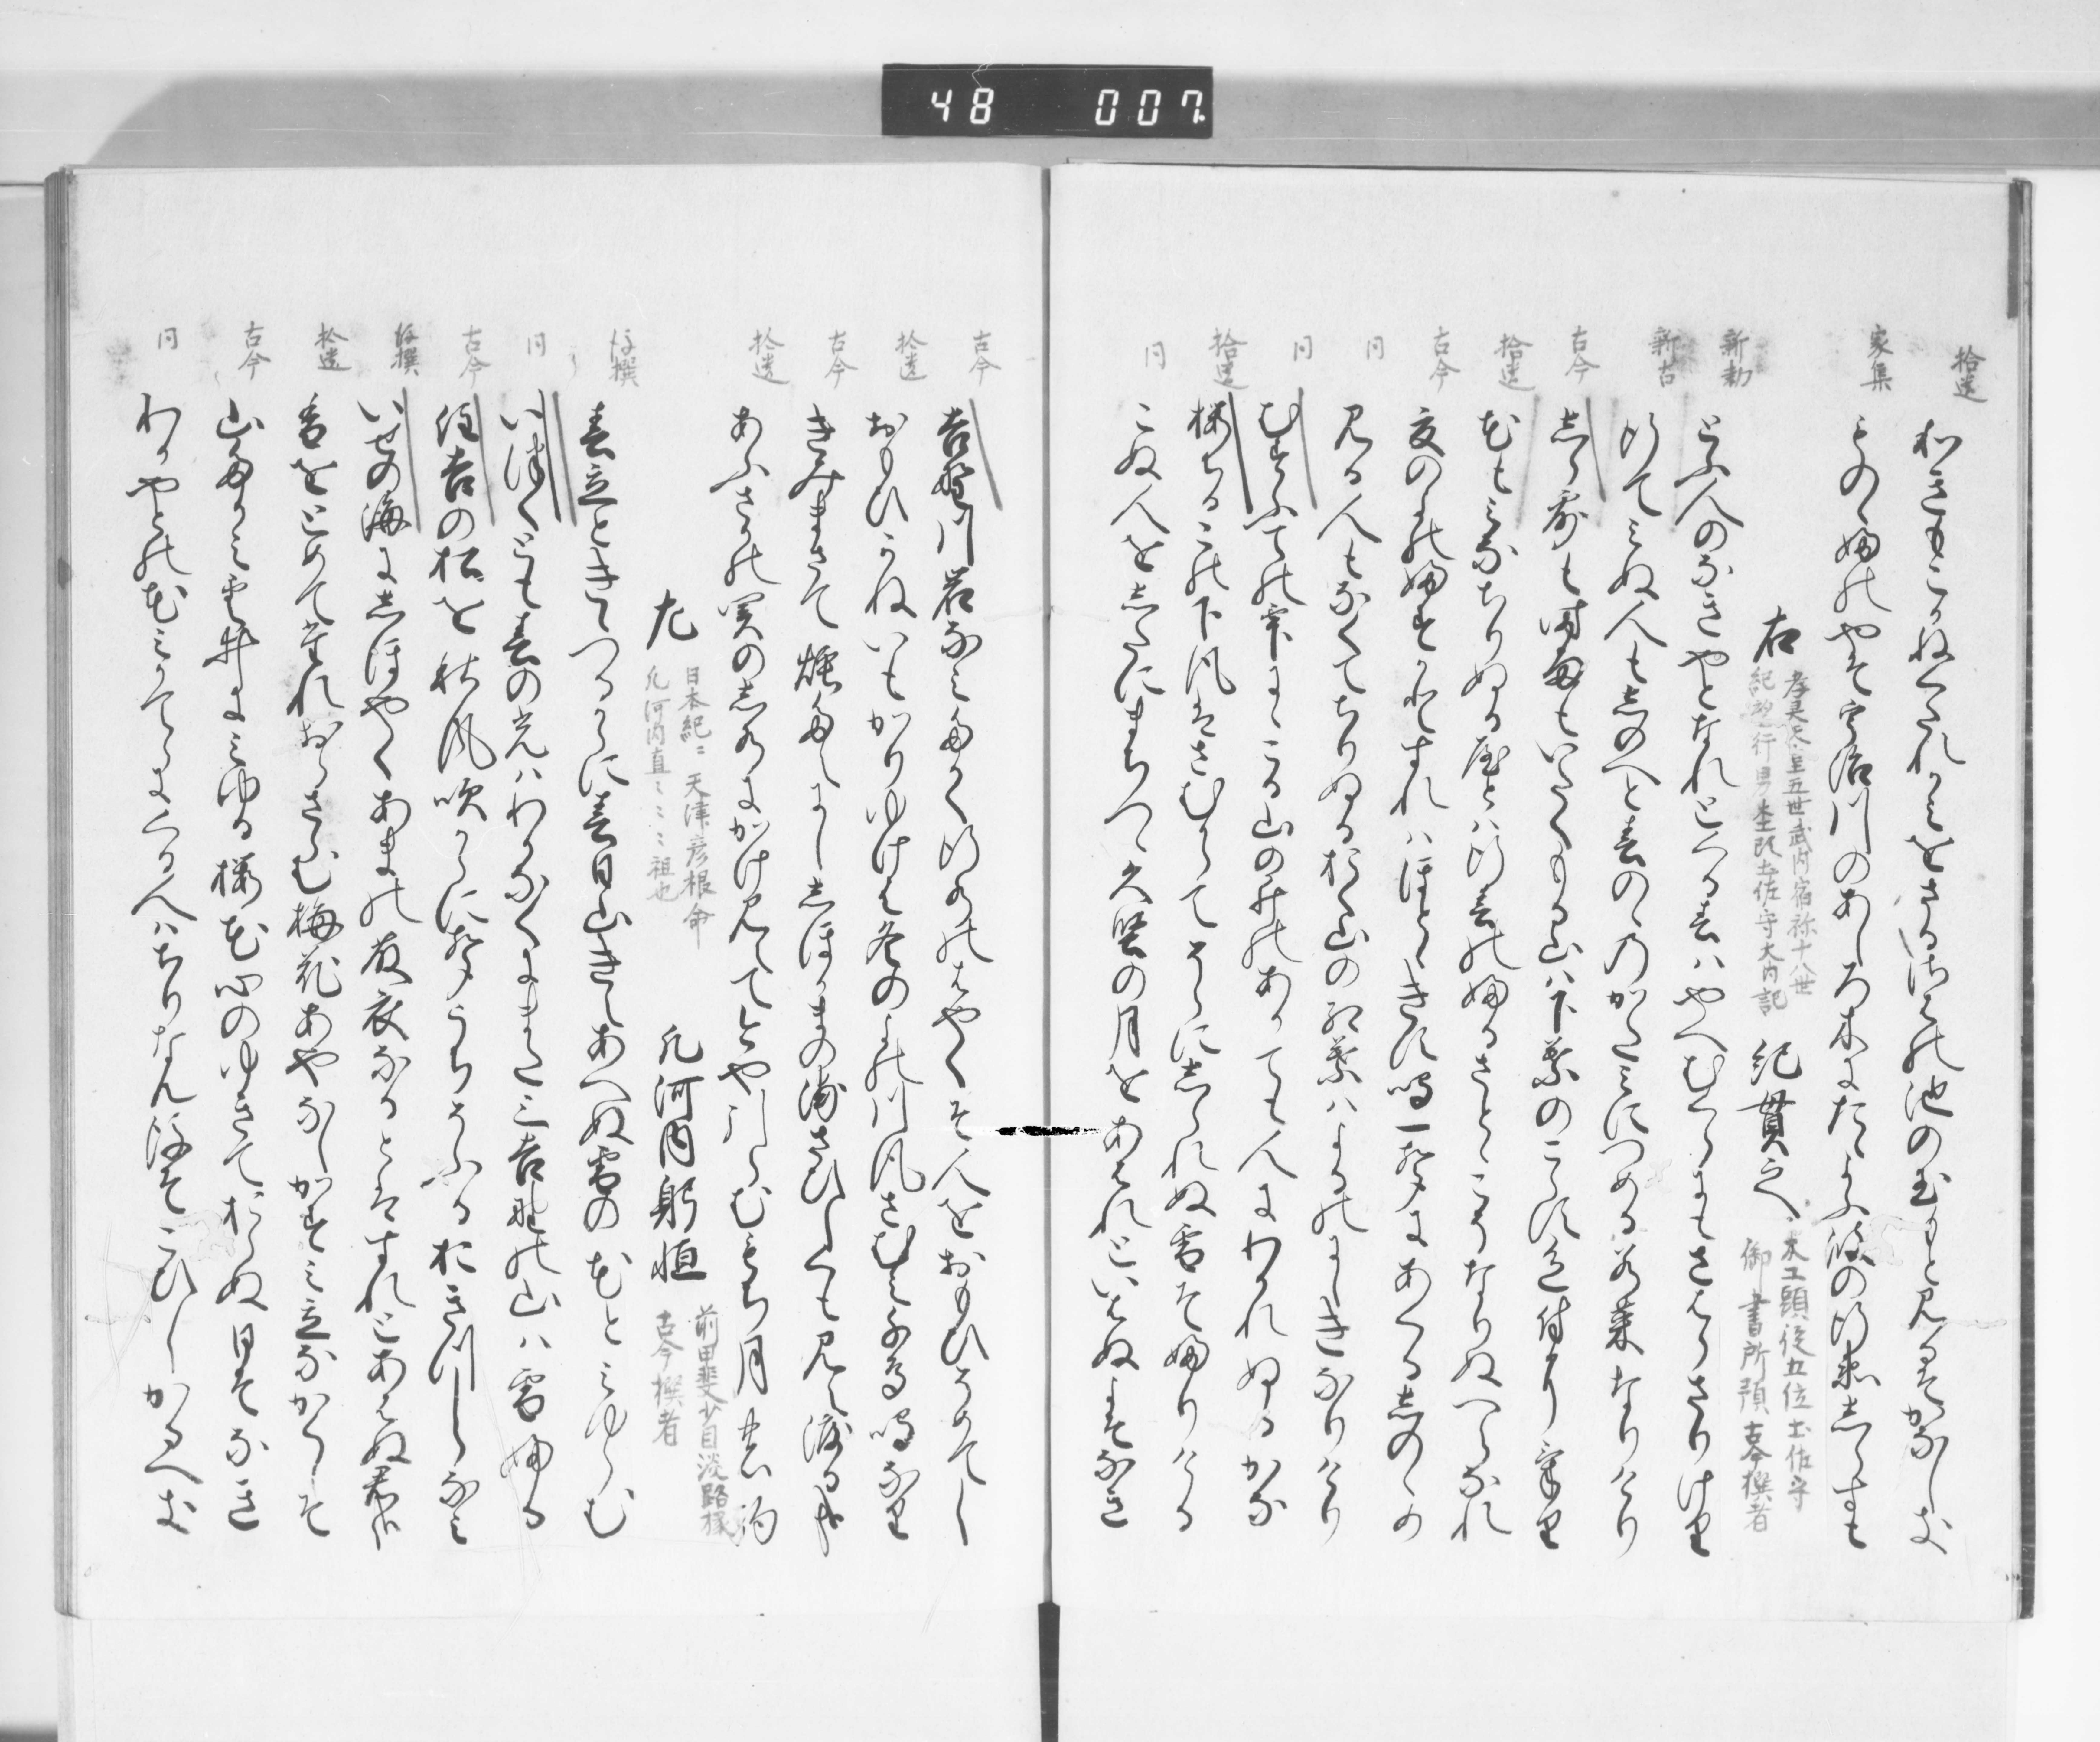 48 007
拾遺 わきもこかねくたれかみをさるさはの池の玉もと見るそかなしき
家集 ものゝふのやそ宇治川のあしろ木にたゝよふ波の行衛しらすも
右 紀貫之
武内宿祢十八世
土佐守大内記
木工頭従五位土佐守
御書所預古今撰者
新勅 とふ人のなきやとなれとくる春はやへむくらにもさはらさりけり
新古 行てみぬ人もしのへと春のゝのかたみにつめる若菜なりけり
古今 しら露も時雨もいたくもる山は下葉のこらす色付にけり
拾遺 花もみなちりぬる宿は行春のふるさとゝこそなりぬへらなれ
古今 夏のよのふすかとすれはほとゝきす鳴一声にあくるしのゝめ
同 見る人もなくてちりぬるおく山の紅葉はよるのにしきなりけり
同 むすふての雫にゝこる山の井のあかても人にわかれぬるかな
拾遺 桜ちるこの下風はさむからてそらにしられぬ雪そふりける
同 こぬ人をしたにまちつゝ久堅の月をあはれといはぬよそなき
古今 吉野川岩なみたかく行水のはやくそ人をおもひそめてし
拾遺 おもひかねいもかりゆけは冬のよの川風さむみ千鳥鳴なり
古今 きみまさて煙たえにししほかまの浦さひしくも見え渡る哉
拾遺 あふさかの関のし水にかけ見えて今や引らむもち月の駒
左 凡河内躬恒
日本紀ニ 天津彦根命
凡河内直ミミミ祖也
前甲斐少目淡路掾
古今撰者
後撰 春立ときゝつるからに春日山きえあへぬ雪の花とみゆらむ
同 いつくとも春の光はわかなくにまたみ吉野の山は雪ふる
古今 住吉の松を秋風吹からに声うちそふるおきつしらなみ
後撰 いせの海にしほやくあまの藤衣なるとはすれとあはぬ君哉
拾遺 香をとめてたれおらさらむ梅花あやなしかすみ立なかくしそ
古今 山たかみ雲井にみゆる桜花心のゆきておらぬ日そなき
同 わかやとの花みかてらにくる人はちりなん後そこひしかるへき